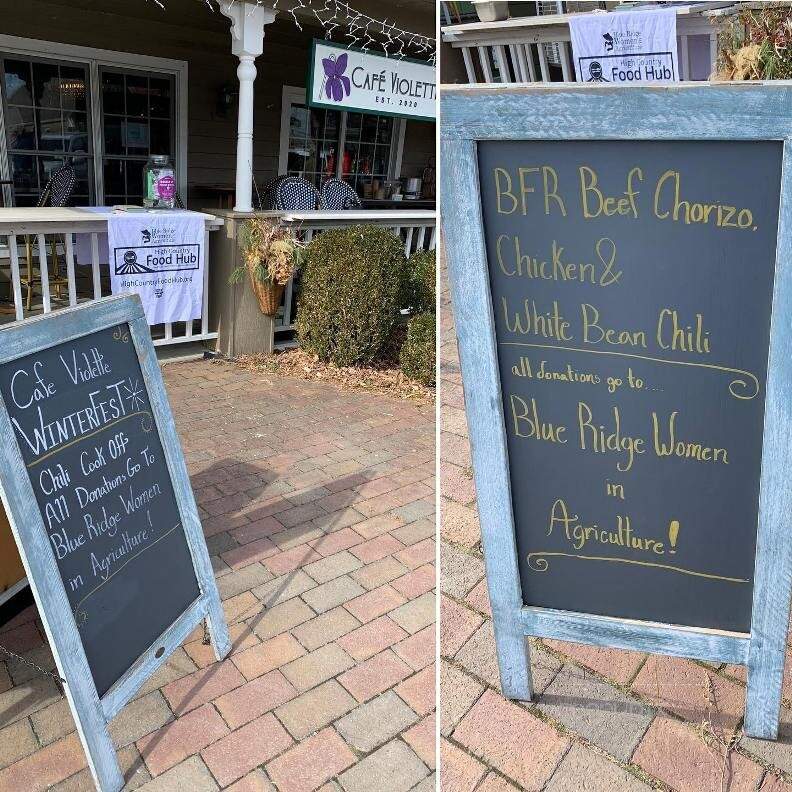 CAFÉ VIOLETT
EST. 2020
Blue Ridge Women's
High Country
Food Hub
HighCountryFoodHub.org
Cafe Violette
WINTERFEST
Chili Cook Off
All Donations Go To
Blue Ridge Women
in Agriculture!
Blue Ridge
Women's
High Country
Food Hub
BFR Beef Chorizo,
Chicken &
White Bean Chili
all donations go to....
Blue Ridge Women
in
Agriculture!